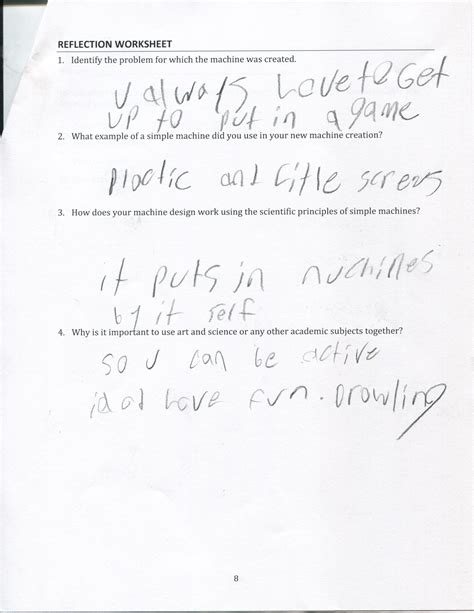 REFLECTION WORKSHEET
1. Identify the problem for which the machine was created.
U always have to Get
up to put in a game
2. What example of a simple machine did you use in your new machine creation?
plactic and little screws
3. How does your machine design work using the scientific principles of simple machines?
it puts in
by it self
4. Why is it important to use art and science or any other academic subjects together?
so U can be active
have fun. Drowling
8